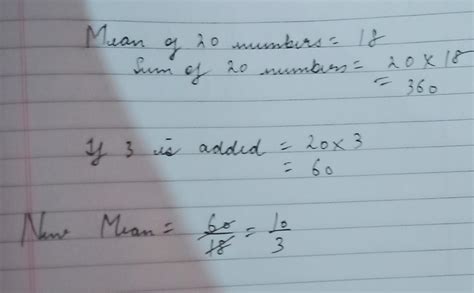 Mean of 20 numbers = 18
Sum of 20 numbers = 20 × 18
= 360
If 3 is added = 20×3
= 60
New Mean = 60/18 = 10/3